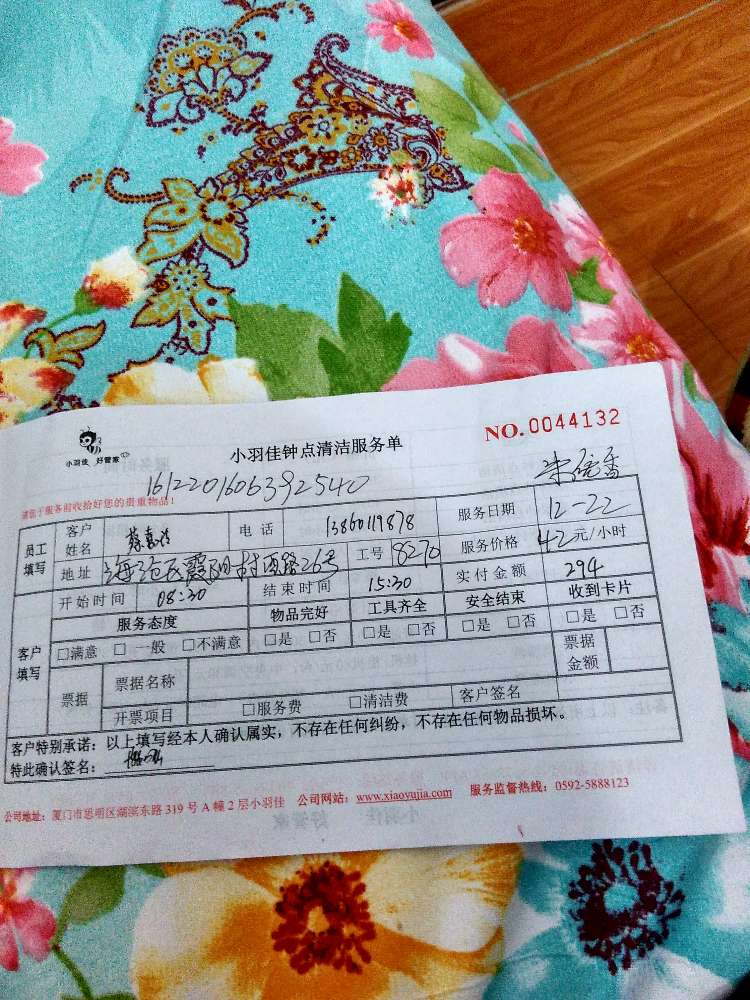 小羽佳 好管家
小羽佳钟点清洁服务单
NO.0044132
1612201606392540
请您于服务前收拾好您的贵重物品！
员工填写 客户姓名 电话 13860119878 服务日期 12-22
地址 海沧区霞阳村西路26号 工号 8270 服务价格 42元/小时
开始时间 08:30 结束时间 15:30 实付金额 294
客户填写 服务态度 物品完好 工具齐全 安全结束 收到卡片
□满意 □一般 □不满意 □是 □否 □是 □否 □是 □否 □是 □否
票据 票据名称 票据金额
开票项目 □服务费 □清洁费 客户签名
客户特别承诺：以上填写经本人确认属实，不存在任何纠纷，不存在任何物品损坏。
特此确认签名：
公司地址：厦门市思明区湖滨东路 319 号 A 幢 2 层小羽佳 公司网站：www.xiaoyujia.com 服务监督热线：0592-5888123